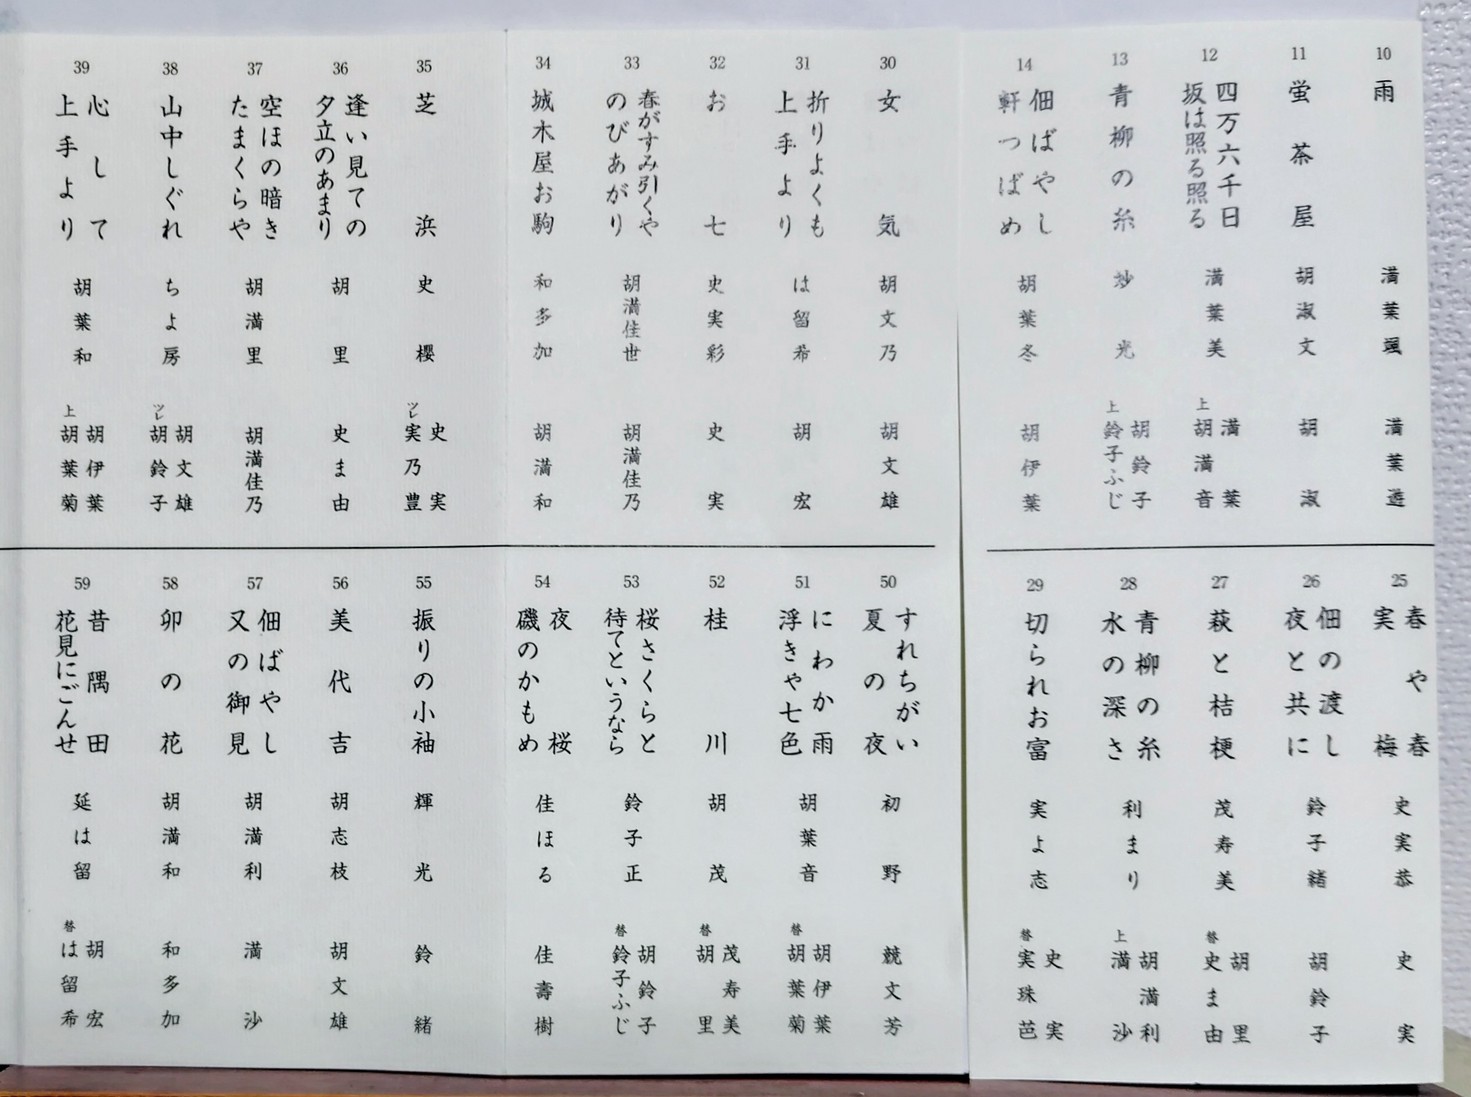 10
雨
満葉颯
満葉遊
11
蛍茶屋
胡淑文
胡淑
12
四万六千日
坂は照る照る
満葉美
満葉
上
胡満音
13
青柳の糸
妙光
胡鈴子
上
鈴子ふじ
14
佃ばやし
軒つばめ
胡葉冬
胡伊葉
25
春や春
実梅
史実恭
史実
26
佃の渡し
夜と共に
鈴子緒
胡鈴子
27
萩と桔梗
茂寿美
胡里
替
史ま由
28
青柳の糸
水の深さ
利まり
胡満利
上
満沙
29
切られお富
実よ志
史実
替
実珠芭
30
女気
胡文乃
胡文雄
31
折りよくも
上手より
は留希
胡宏
32
お七
史実彩
史実
33
春がすみ引くや
のびあがり
胡満佳世
胡満佳乃
34
城木屋お駒
和多加
胡満和
50
すれちがい
夏の夜
初野
競文芳
51
にわか雨
浮きゃ七色
胡葉音
胡伊葉
替
胡葉菊
52
桂川
胡茂
茂寿美
替
胡里
53
桜さくらと
待てというなら
鈴子正
胡鈴子
替
鈴子ふじ
54
夜桜
磯のかもめ
佳ほる
佳壽樹
35
芝浜
史櫻
史実
ツレ
実乃豊
36
逢い見ての
夕立のあまり
胡里
史ま由
37
空ほの暗き
たまくらや
胡満里
胡満佳乃
38
山中しぐれ
ちよ房
胡文雄
ツレ
胡鈴子
39
心して
上手より
胡葉和
胡伊葉
上
胡葉菊
55
振りの小袖
輝光
鈴緒
56
美代吉
胡志枝
胡文雄
57
佃ばやし
又の御見
胡満利
満沙
58
卯の花
胡満和
和多加
59
昔隅田
花見にごんせ
延は留
胡宏
替
は留希